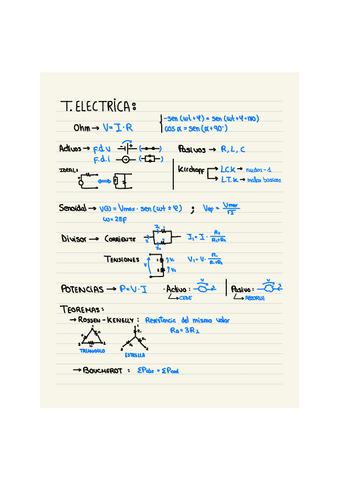 T. ELECTRICA:
Ohm → V = I · R
-sen (ωt + φ) = sen (ωt + φ + 180)
cos α = sen (α + 90°)
Activos → F.d.V
F.d.i
Pasivos → R, L, C
IDEAL:
Kirchoff → L.C.K → nudos - 1
→ L.T.K → mallas basicas
Senoidal → v(t) = Vmax · sen (ωt ± φ) ; Vef = Vmax/√2
ω = 2πF
Divisor → CORRIENTE I₁ = I · R₂/(R₁+R₂)
TENSIONES V₁ = V ·
POTENCIAS → P = V · I · Activo: Pasivo:
↳ CEDE ↳ ABSORBE
TEOREMAS:
→ ROSSEN - KENELLY: Resistencia del mismo valor
R∆ = 3Rλ
TRIANGULO ESTRELLA
→ BOUCHEROT: